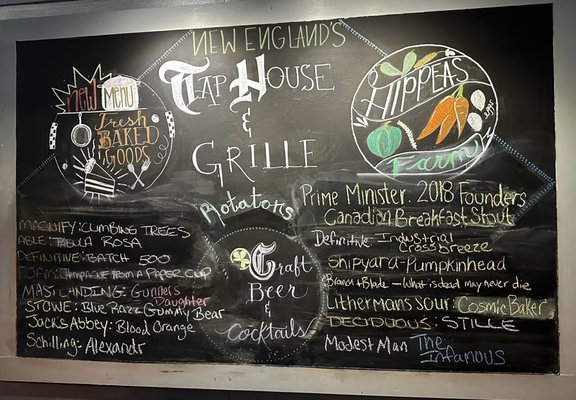 NEW ENGLAND'S
TAP HOUSE
&
GRILLE
new MENU
Fresh
BAKED
GOODS
HIPPEAS
Farm
Rotators
Craft
BEER
&
Cocktails
MAGNIFY: CLIMBING TREES
ABLE: TABULA ROSA
DEFINITIVE: BATCH 500
FOAM: CHAMPAGNE FROM A PAPER CUP
MAST LANDING: Gunners
Daughter
STOWE: Blue Razz Gummy Bear
Jacks Abbey: Blood Orange
Schilling: Alexandr
Prime Minister: 2018 Founders
Canadian Breakfast Stout
Definitive: Industrial
Crossbreeze
Shipyard-Pumpkinhead
Branch + Blade - What is dead may never die
Lithermans Sour: Cosmic Baker
DECIDUOUS: STILLE
Modest Man The
Infamous